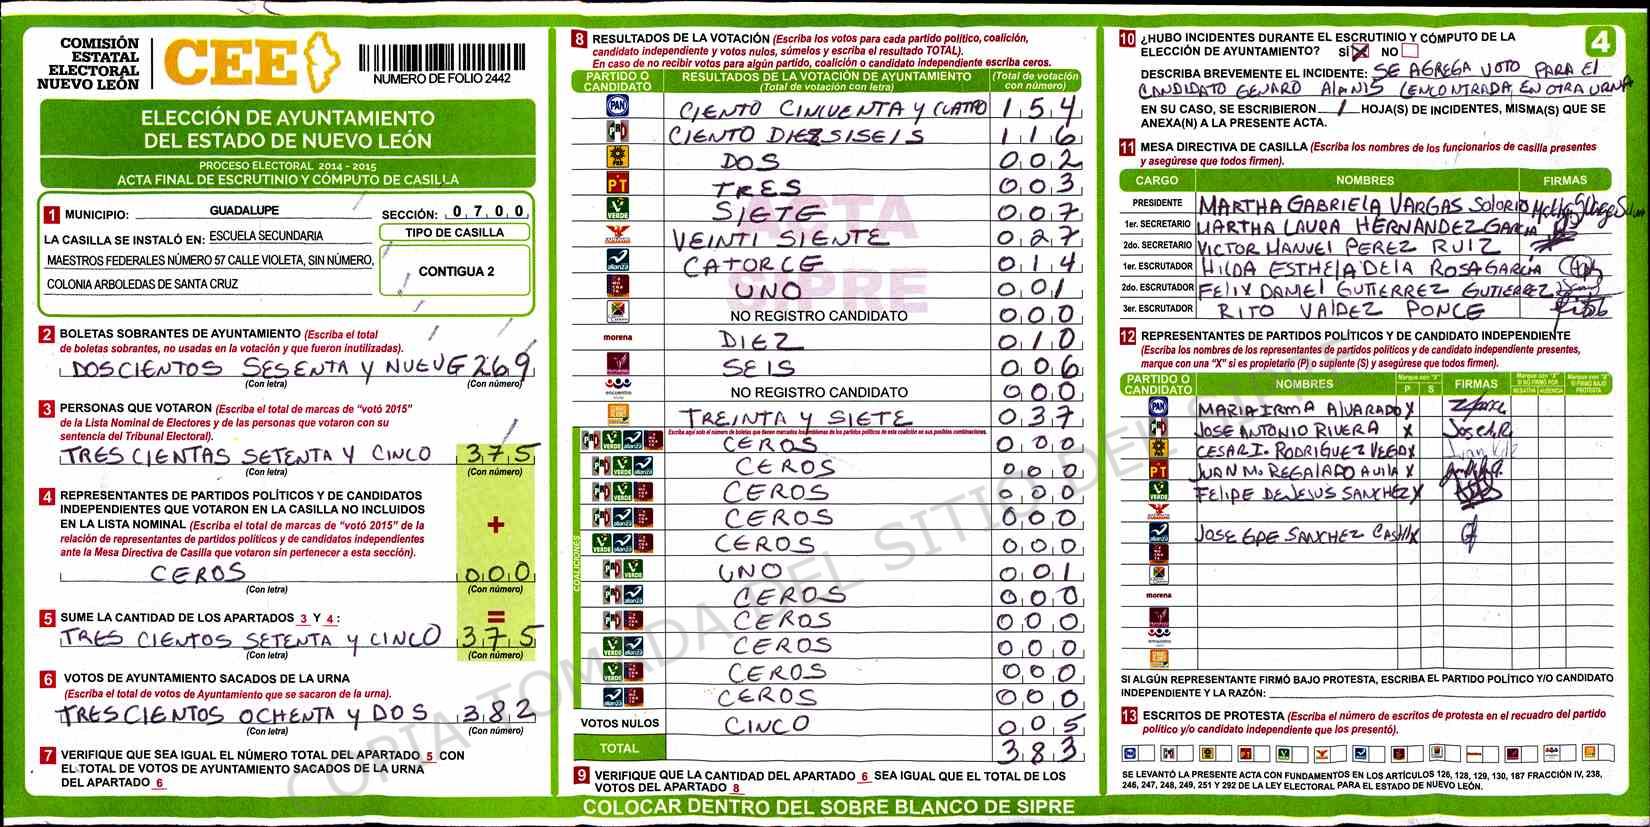 COMISIÓN
ESTATAL
ELECTORAL
NUEVO LEÓN
CEE
NUMERO DE FOLIO 2442
ELECCIÓN DE AYUNTAMIENTO
DEL ESTADO DE NUEVO LEÓN
PROCESO ELECTORAL 2014 - 2015
ACTA FINAL DE ESCRUTINIO Y CÓMPUTO DE CASILLA
1 MUNICIPIO: GUADALUPE SECCIÓN: 0 7 0 0
LA CASILLA SE INSTALÓ EN: ESCUELA SECUNDARIA
MAESTROS FEDERALES NÚMERO 57 CALLE VIOLETA, SIN NÚMERO,
COLONIA ARBOLEDAS DE SANTA CRUZ
TIPO DE CASILLA
CONTIGUA 2
2 BOLETAS SOBRANTES DE AYUNTAMIENTO (Escriba el total
de boletas sobrantes, no usadas en la votación y que fueron inutilizadas).
DOSCIENTOS SESENTA Y NUEVE 269
(Con letra) (Con número)
3 PERSONAS QUE VOTARON (Escriba el total de marcas de “votó 2015”
de la Lista Nominal de Electores y de las personas que votaron con su
sentencia del Tribunal Electoral).
TRES CIENTAS SETENTA Y CINCO 375
(Con letra) (Con número)
4 REPRESENTANTES DE PARTIDOS POLÍTICOS Y DE CANDIDATOS
INDEPENDIENTES QUE VOTARON EN LA CASILLA NO INCLUIDOS
EN LA LISTA NOMINAL (Escriba el total de marcas de “votó 2015” de la
relación de representantes de partidos políticos y de candidatos independientes
ante la Mesa Directiva de Casilla que votaron sin pertenecer a esta sección).
+
CEROS 000
(Con letra) (Con número)
=
5 SUME LA CANTIDAD DE LOS APARTADOS 3 Y 4 :
TRES CIENTOS SETENTA Y CINCO 375
(Con letra) (Con número)
6 VOTOS DE AYUNTAMIENTO SACADOS DE LA URNA
(Escriba el total de votos de Ayuntamiento que se sacaron de la urna).
TRESCIENTOS OCHENTA Y DOS 382
(Con letra) (Con número)
7 VERIFIQUE QUE SEA IGUAL EL NÚMERO TOTAL DEL APARTADO 5 CON
EL TOTAL DE VOTOS DE AYUNTAMIENTO SACADOS DE LA URNA
DEL APARTADO 6
8 RESULTADOS DE LA VOTACIÓN (Escriba los votos para cada partido político, coalición,
candidato independiente y votos nulos, súmelos y escriba el resultado TOTAL).
En caso de no recibir votos para algún partido, coalición o candidato independiente escriba ceros.
PARTIDO O CANDIDATO
RESULTADOS DE LA VOTACIÓN DE AYUNTAMIENTO
(Total de votación con letra)
(Total de votación con número)
PAN CIENTO CINCUENTA Y CUATRO 154
PRD CIENTO DIEZSISEIS 116
PRD DOS 002
PT TRES 003
VERDE SIETE 007
VEINTI SIENTE 027
alianza CATORCE 014
UNO 001
NO REGISTRO CANDIDATO 000
morena DIEZ 010
SEIS 006
encuentro NO REGISTRO CANDIDATO 000
TREINTA Y SIETE 037
COALICIONES
CEROS 000
CEROS 000
CEROS 000
CEROS 000
CEROS 000
UNO 001
CEROS 000
CEROS 000
CEROS 000
CEROS 000
CEROS 000
VOTOS NULOS CINCO 005
TOTAL 383
9 VERIFIQUE QUE LA CANTIDAD DEL APARTADO 6 SEA IGUAL QUE EL TOTAL DE LOS
VOTOS DEL APARTADO 8
ACTA
SIPRE
COPIA TOMADA DEL SITIO DEL SIPRE
COLOCAR DENTRO DEL SOBRE BLANCO DE SIPRE
4
10 ¿HUBO INCIDENTES DURANTE EL ESCRUTINIO Y CÓMPUTO DE LA
ELECCIÓN DE AYUNTAMIENTO? SÍ X NO
DESCRIBA BREVEMENTE EL INCIDENTE: SE AGREGA VOTO PARA El
CANDIDATO GENARO AlANIS (ENCONTRADA EN OTRA URNA
EN SU CASO, SE ESCRIBIERON 1 HOJA(S) DE INCIDENTES, MISMA(S) QUE SE
ANEXA(N) A LA PRESENTE ACTA.
11 MESA DIRECTIVA DE CASILLA (Escriba los nombres de los funcionarios de casilla presentes
y asegúrese que todos firmen).
CARGO NOMBRES FIRMAS
PRESIDENTE MARTHA GABRIELA VARGAS SOLORIO
1er. SECRETARIO MARTHA LAURA HERNANDEZ GARCIA
2do. SECRETARIO VICTOR MANUEL PEREZ RUIZ
1er. ESCRUTADOR HILDA ESTHELA DE LA ROSA GARCIA
2do. ESCRUTADOR FELIX DANIEL GUTIERREZ GUTIERREZ
3er. ESCRUTADOR RITO VALDEZ PONCE
12 REPRESENTANTES DE PARTIDOS POLÍTICOS Y DE CANDIDATO INDEPENDIENTE
(Escriba los nombres de los representantes de partidos políticos y de candidato independiente presentes,
marque con una “X” si es propietario (P) o suplente (S) y asegúrese que todos firmen).
PARTIDO O CANDIDATO NOMBRES P S FIRMAS
PAN MARIA IRMA AlVARADO X
JOSE ANTONIO RIVERA X Jose A.R
CESAR I. RODRIGUEZ VEGA X
PT JUAN M. REGALADO AVILA X
VERDE FELIPE DE JESUS SANCHEZ X
alianza JOSE GPE SANCHEZ Castillo X
morena
SI ALGÚN REPRESENTANTE FIRMÓ BAJO PROTESTA, ESCRIBA EL PARTIDO POLÍTICO Y/O CANDIDATO
INDEPENDIENTE Y LA RAZÓN:
13 ESCRITOS DE PROTESTA (Escriba el número de escritos de protesta en el recuadro del partido
político y/o candidato independiente que los presentó).
SE LEVANTÓ LA PRESENTE ACTA CON FUNDAMENTOS EN LOS ARTÍCULOS 126, 128, 129, 130, 187 FRACCIÓN IV, 238,
246, 247, 248, 249, 251 Y 292 DE LA LEY ELECTORAL PARA EL ESTADO DE NUEVO LEÓN.